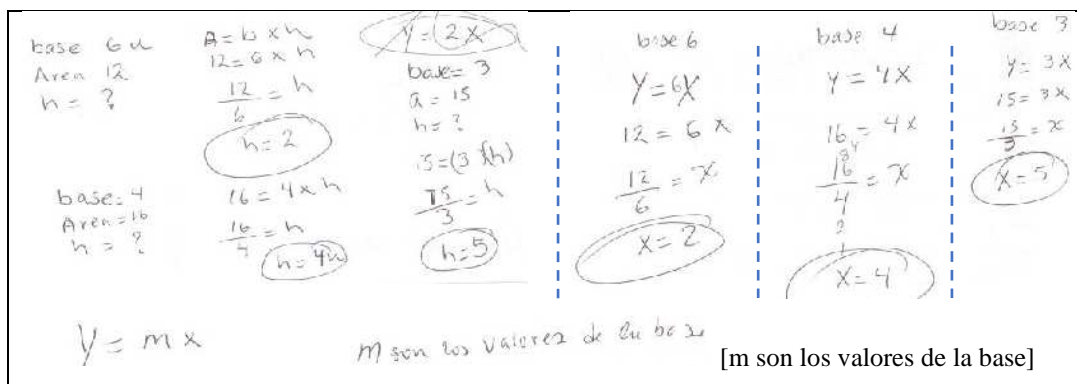 base 6u
Area 12
h = ?
A = b x h
12 = 6 x h
12/6 = h
h = 2
base = 4
Area = 16
h = ?
16 = 4 x h
16/4 = h
h = 4u
Y = 2X
base = 3
a = 15
h = ?
15 = (3)(h)
15/3 = h
h = 5
base 6
Y = 6X
12 = 6 X
12/6 = X
X = 2
base 4
y = 4X
16 = 4X
8
16/4 = X
2
1
X = 4
base 3
y = 3X
15 = 3X
15/3 = x
X = 5
Y = m x
m son los valores de la base
[m son los valores de la base]